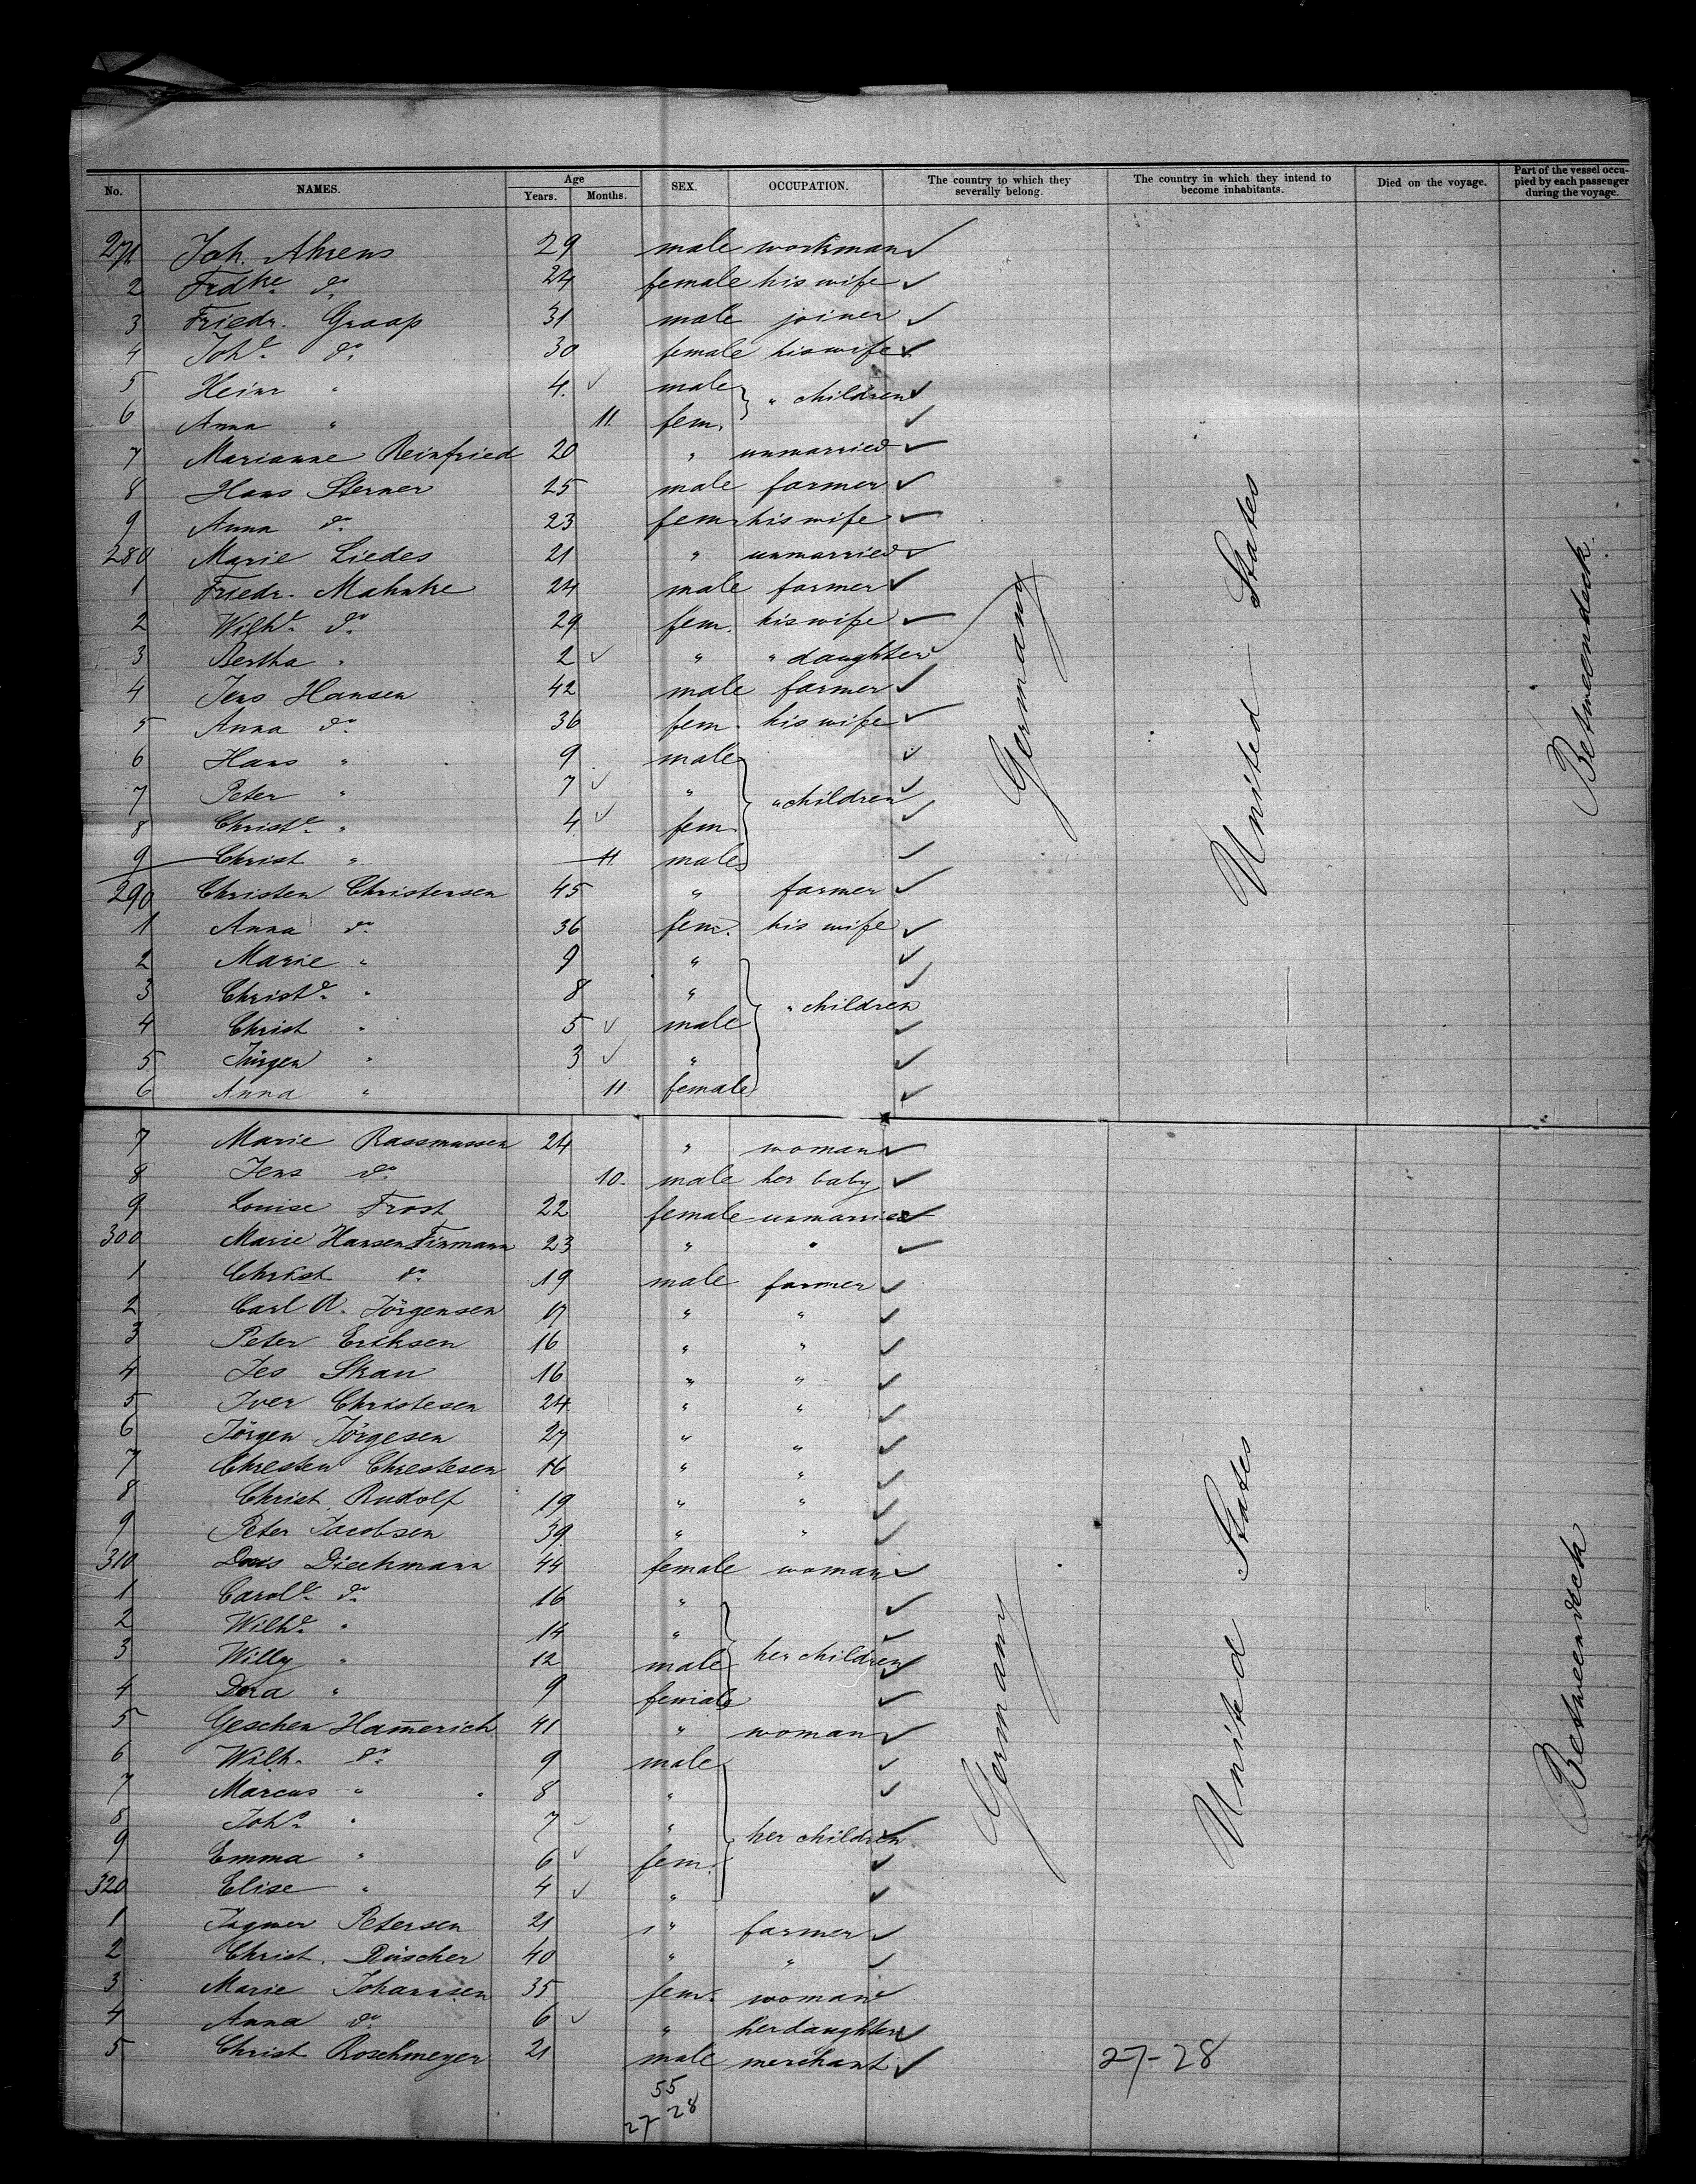 No. NAMES. Age Years. Months. SEX. OCCUPATION. The country to which they severally belong. The country in which they intend to become inhabitants. Died on the voyage. Part of the vessel occupied by each passenger during the voyage.
271 Joh. Ahrens 29 male workman
2 Frdke do 24 female his wife
3 Friedr. Graap 31 male joiner
4 Johe do 30 female his wife
5 Heinr " 4 male " children
6 Anna " 11 fem.
7 Marianne Reinfried 20 " unmarried
8 Hans Sterner 25 male farmer
9 Anna do 23 fem his wife
280 Marie Liedes 21 " unmarried
1 Friedr. Mahnke 24 male farmer
2 Wilhe do 29 fem. his wife
3 Bertha " 2 " " daughter
4 Jens Hansen 42 male farmer
5 Anna do 36 fem. his wife
6 Hans " 9 male
7 Peter " 7 " " children
8 Christe " 4 fem
9 Christ " 11 male
290 Christen Christensen 45 " farmer
1 Anna do 36 fem. his wife
2 Marie " 9 "
3 Christe " 8 " " children
4 Christ " 5 male
5 Jürgen " 3 "
6 Anna " 11 female
Germany United States Betweendeck.
7 Marie Rassmussen 24 " woman
8 Jens do 10 male her baby
9 Louise Frost 22 female unmarried
300 Marie Hansen Finmann 23 " "
1 Christ do 19 male farmer
2 Carl A. Jörgensen 17 " "
3 Peter Eriksen 16 " "
4 Jes Skau 16 " "
5 Iver Christesen 24 " "
6 Jörgen Jörgesen 27 " "
7 Chresten Chrestesen 16 " "
8 Christ. Rudolf 19 " "
9 Peter Jacobsen 39 " "
310 Dieckmann 44 female woman
1 Carole do 16 "
2 Wilhe " 14 "
3 Willy " 12 male her children
4 Dora " 9 female
5 Geschen Hamerich 41 " woman
6 Wilh. do 9 male
7 Marcus " 8 "
8 Johs " 7 " her children
9 Emma " 6 fem.
320 Elise " 4 "
1 Ingwer Petersen 21 " farmer
2 Christ. Düscher 40 " "
3 Marie Johannsen 35 fem. woman
4 Anna do 6 " her daughter
5 Christ Roschmeyer 21 male merchant
Germany United States Betweendeck
27-28
55
27-28